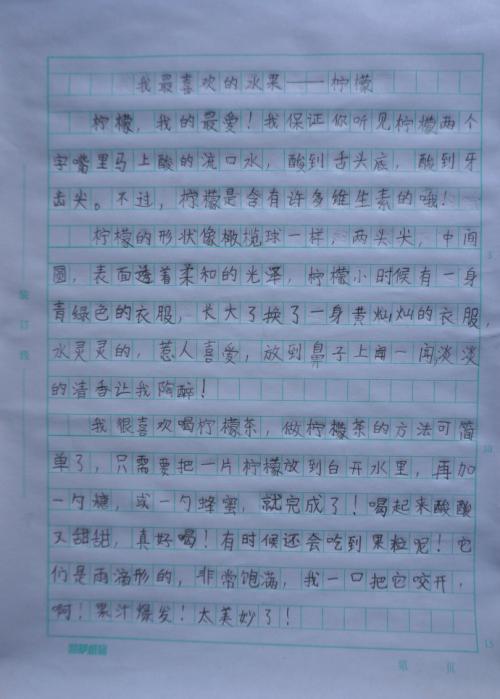 我最喜欢的水果——柠檬
柠檬，我的最爱！我保证你听见柠檬两个
字嘴里马上酸的流口水，酸到舌头底，酸到牙
齿尖。不过，柠檬是含有许多维生素的哦！
柠檬的形状像橄榄球一样，两头尖，中间
圆，表面透着柔和的光泽，柠檬小时候有一身
青绿色的衣服，长大了换了一身黄灿灿的衣服，
水灵灵的，惹人喜爱，放到鼻子上闻一闻，淡淡
的清香让我陶醉！
我很喜欢喝柠檬茶，做柠檬茶的方法可简
单了，只需要把一片柠檬放到白开水里，再加
一勺糖，或一勺蜂蜜，就完成了！喝起来酸酸
又甜甜，真好喝！有时候还会吃到果粒呢！它
们是雨滴形的，非常饱满，我一口把它咬开，
啊！果汁爆发！太美妙了！
装
订
线
5
10
15
第 页